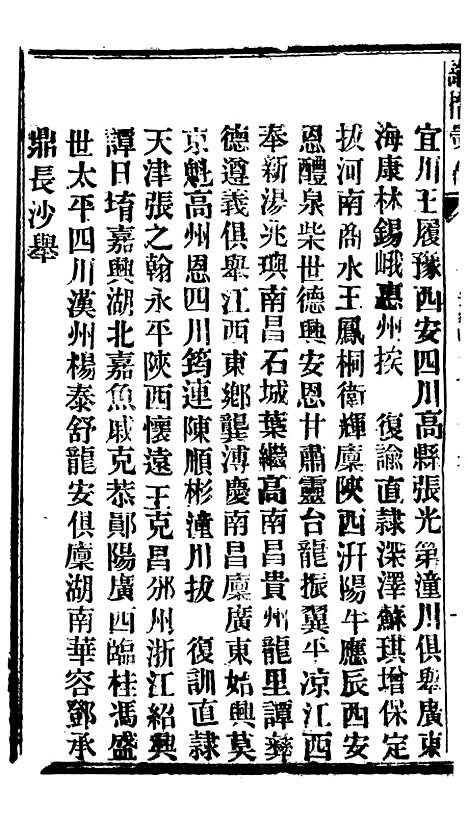 宜川王履豫西安四川高縣張光第潼川俱舉廣東
海康林錫峨惠州挨　復諭直隷深澤蘇琪增保定
拔河南商水王鳳桐衛輝廩陜西汧陽牛應辰西安
恩醴泉柴世德興安恩甘肅靈台龍振翼平凉江西
奉新湯兆璵南昌石城葉繼高南昌貴州龍里譚彝
德遵義俱舉江西東鄉龔溥慶南昌廩廣東始興莫
京魁高州恩四川筠連陳順彬潼川拔　復訓直隷
天津張之翰永平陜西懷遠王克昌邠州浙江紹興
譚日堉嘉興湖北嘉魚戚克恭鄖陽廣西臨桂馮盛
世太平四川漢州楊泰舒龍安俱廩湖南華容鄧承
鼎長沙舉